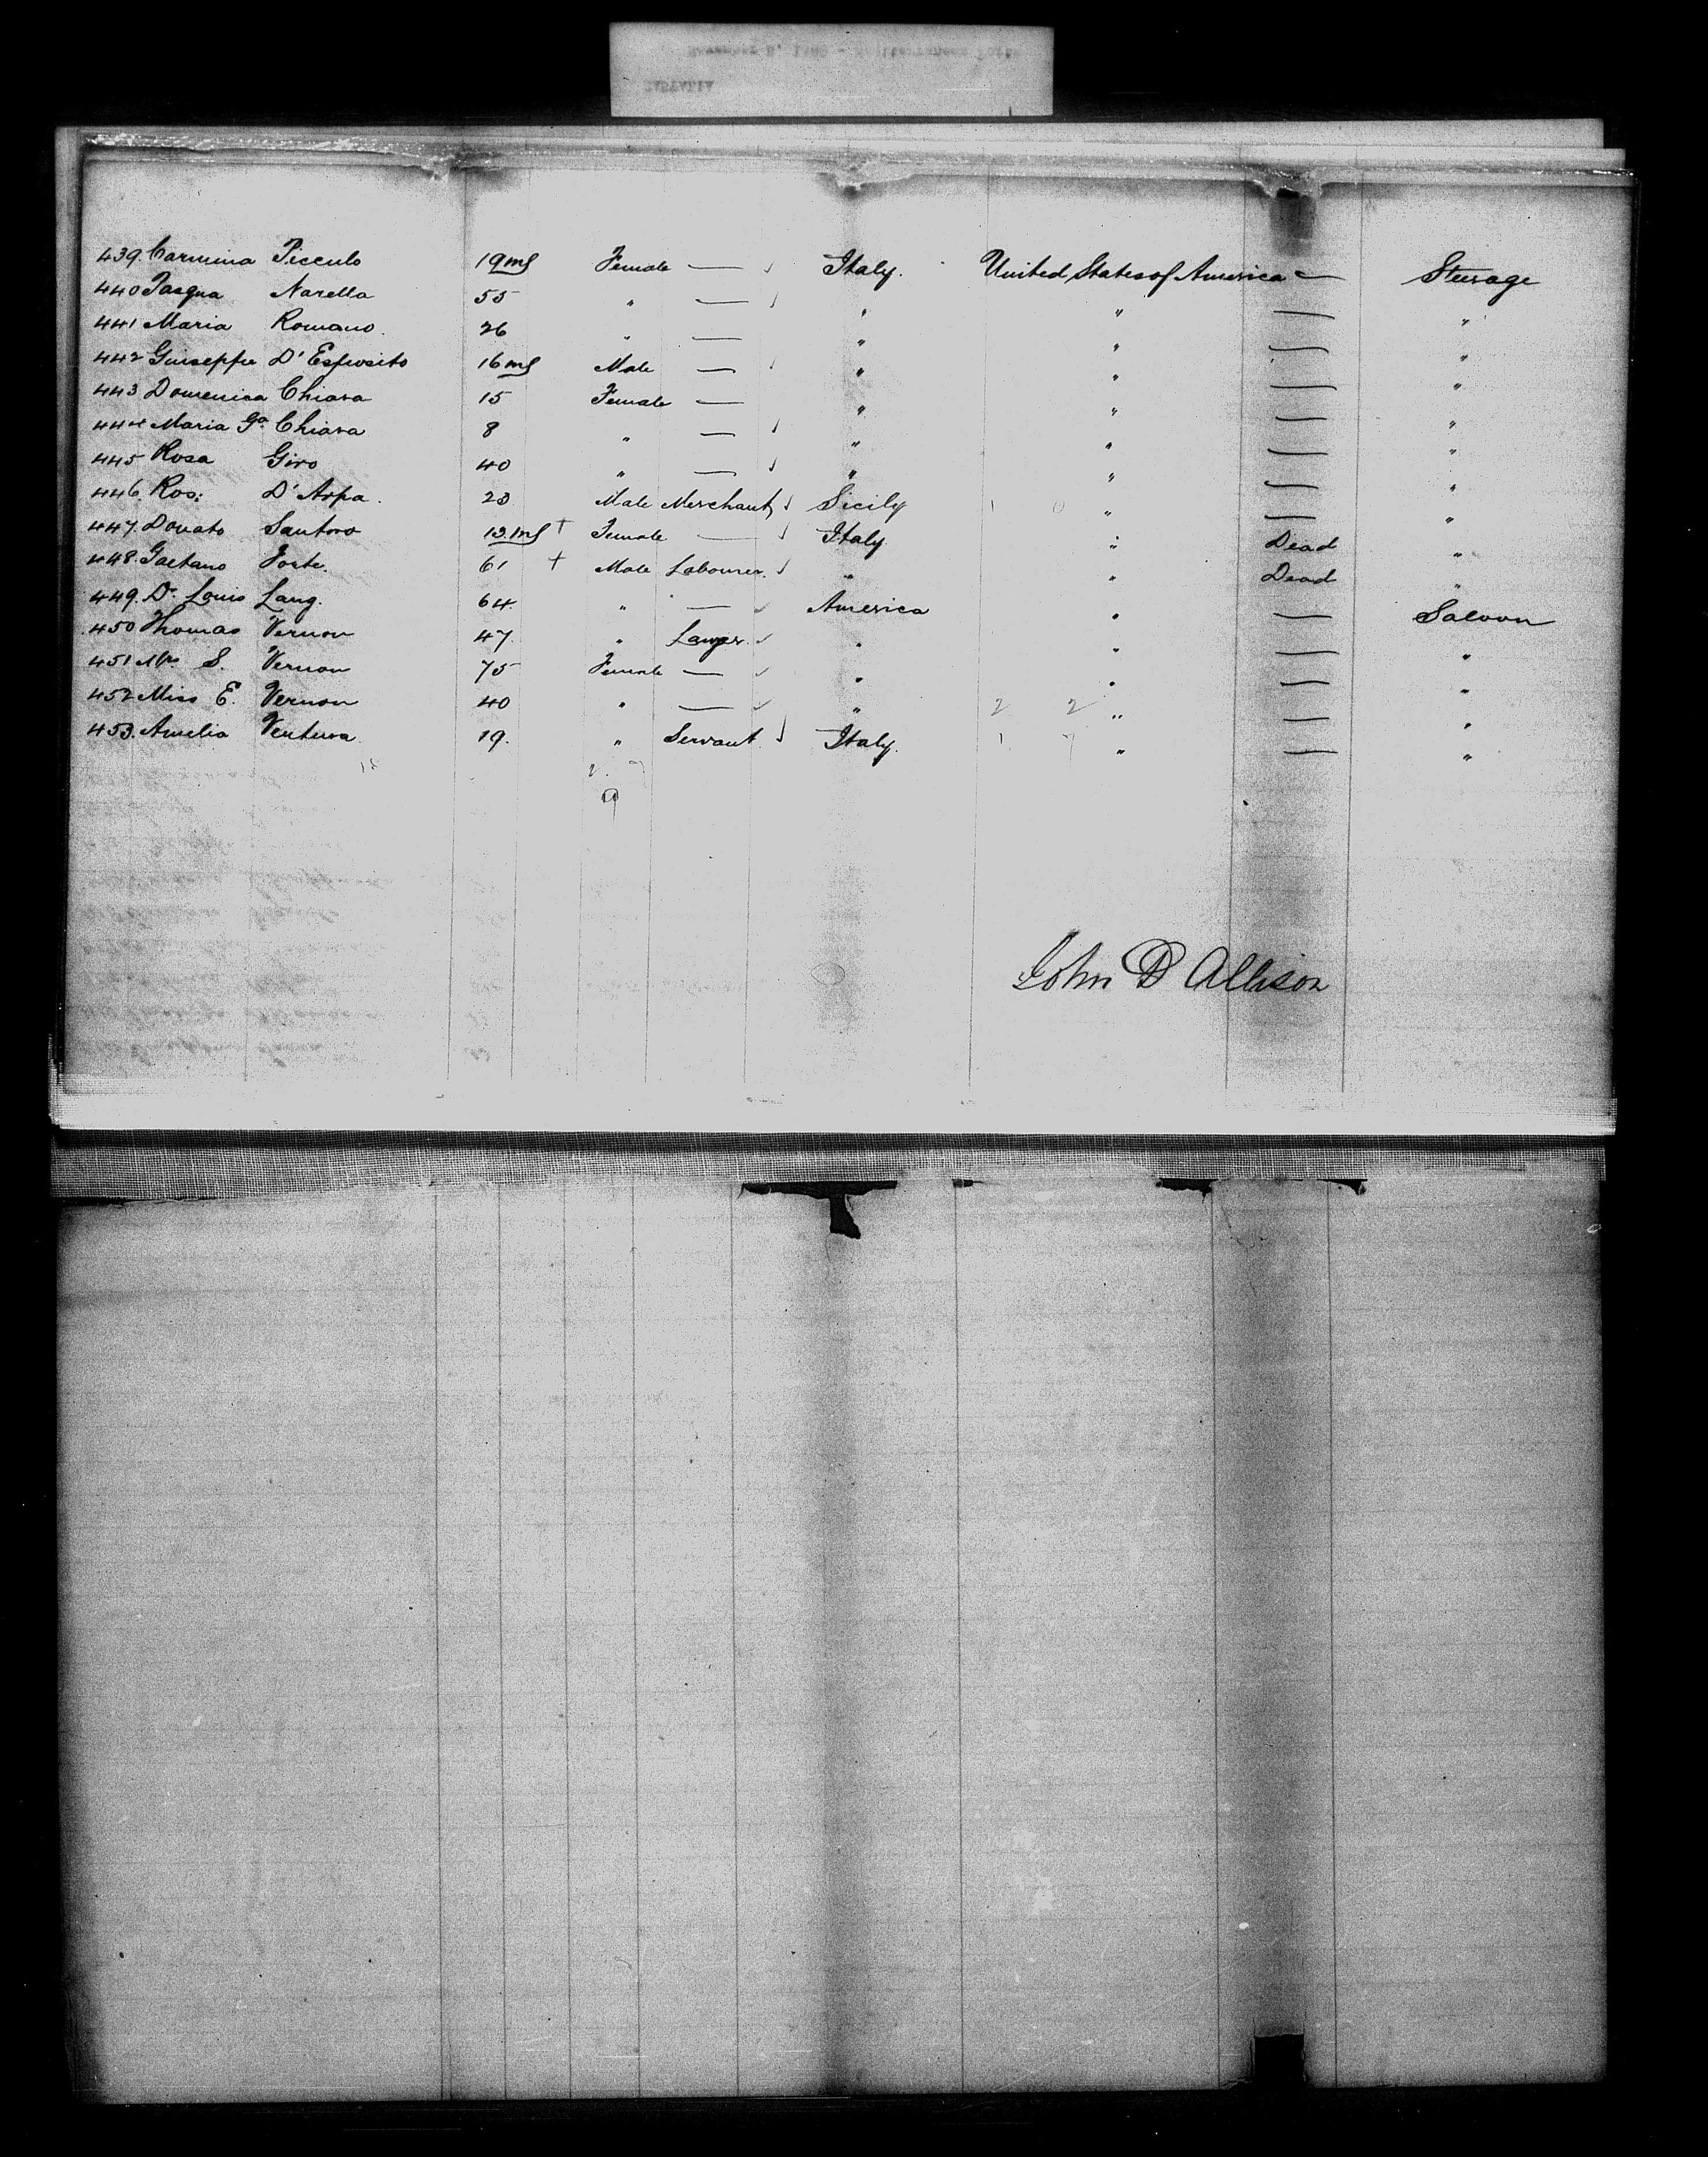 439. Carmina Piccolo 19 ms Female — Italy. United States of America — Steerage
440 Pasqua Narella 55 " — " " — "
441 Maria Romano. 26 " — " " — "
442 Giuseppe D'Esposito 16 ms Male — " " — "
443 Domenica Chiara 15 Female — " " — "
444 Maria Ga Chiara 8 " — " " — "
445 Rosa Giro 40 " — " " — "
446. Ros: D'Arpa. 23 Male Merchant Sicily " — "
447. Donato Santoro 13. ms + Female — Italy " Dead "
448. Gaetano 61 + Male Labourer. " " Dead "
449. Dr. Louis Lang. 64 " — America " — Saloon
450 Thomas Vernon 47 " " " — "
451 Mrs S. Vernon 75 Female — " " — "
452 Miss E. Vernon 40 " — " 2 2 " — "
453. Amelia Ventura 19. " Servant. Italy. 1 7 " — "
John D Allison